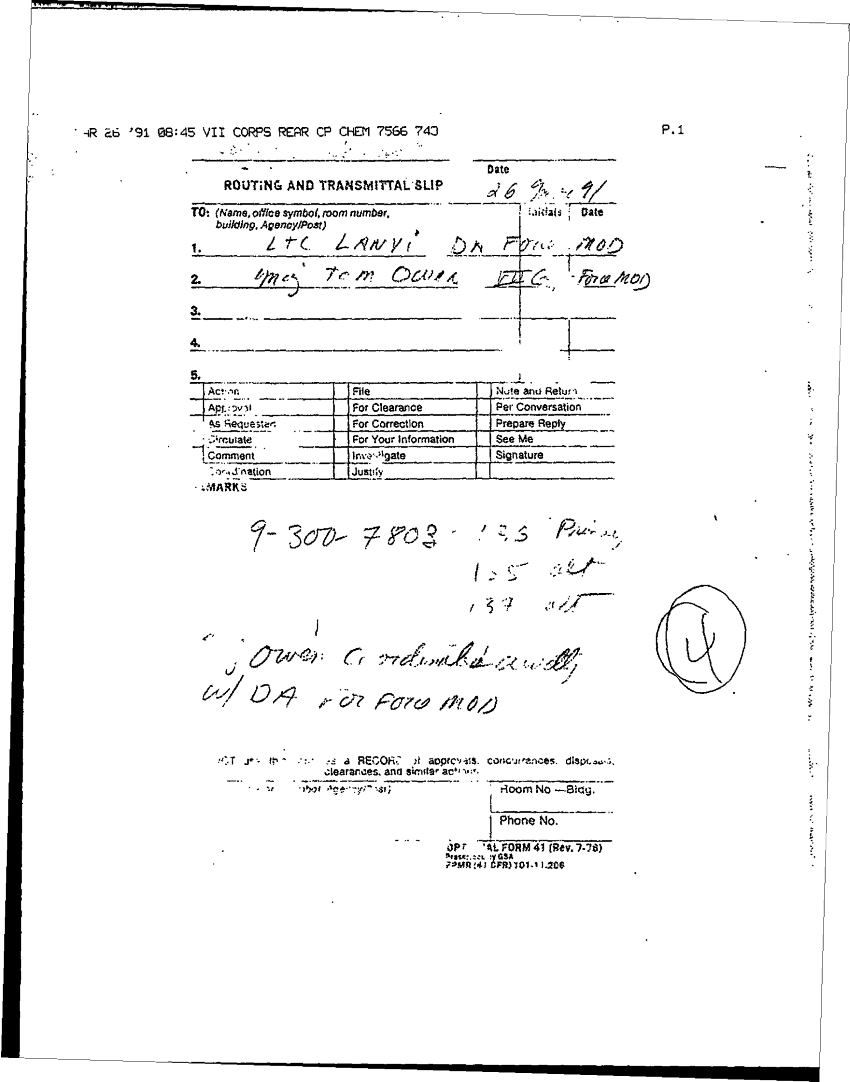 '91 08:45 VII CORPS REAR CP CHEM 7566 743 P.1
ROUTING AND TRANSMITTAL SLIP
Date
26 91
TO: (Name, office symbol, room number,
building, Agency/Post)
Initials Date
1. LTC LANVI DA Force MOD
2. Maj Tom Owen VII C, Force MOD
3.
4.
5.
Action File Note and Return
Approval For Clearance Per Conversation
As Requested For Correction Prepare Reply
Circulate For Your Information See Me
Comment Investigate Signature
Coordination Justify
REMARKS
9-300-7803-
alt
137 alt
4
Owen
w/ DA For Force MOD
as a RECORD of approvals, concurrences, disposals,
clearances, and similar actions
Agency/Post) Room No.—Bldg.
Phone No.
OPTIONAL FORM 41 (Rev. 7-76)
Prescribed by GSA
FPMR (41 CFR) 101-11.206